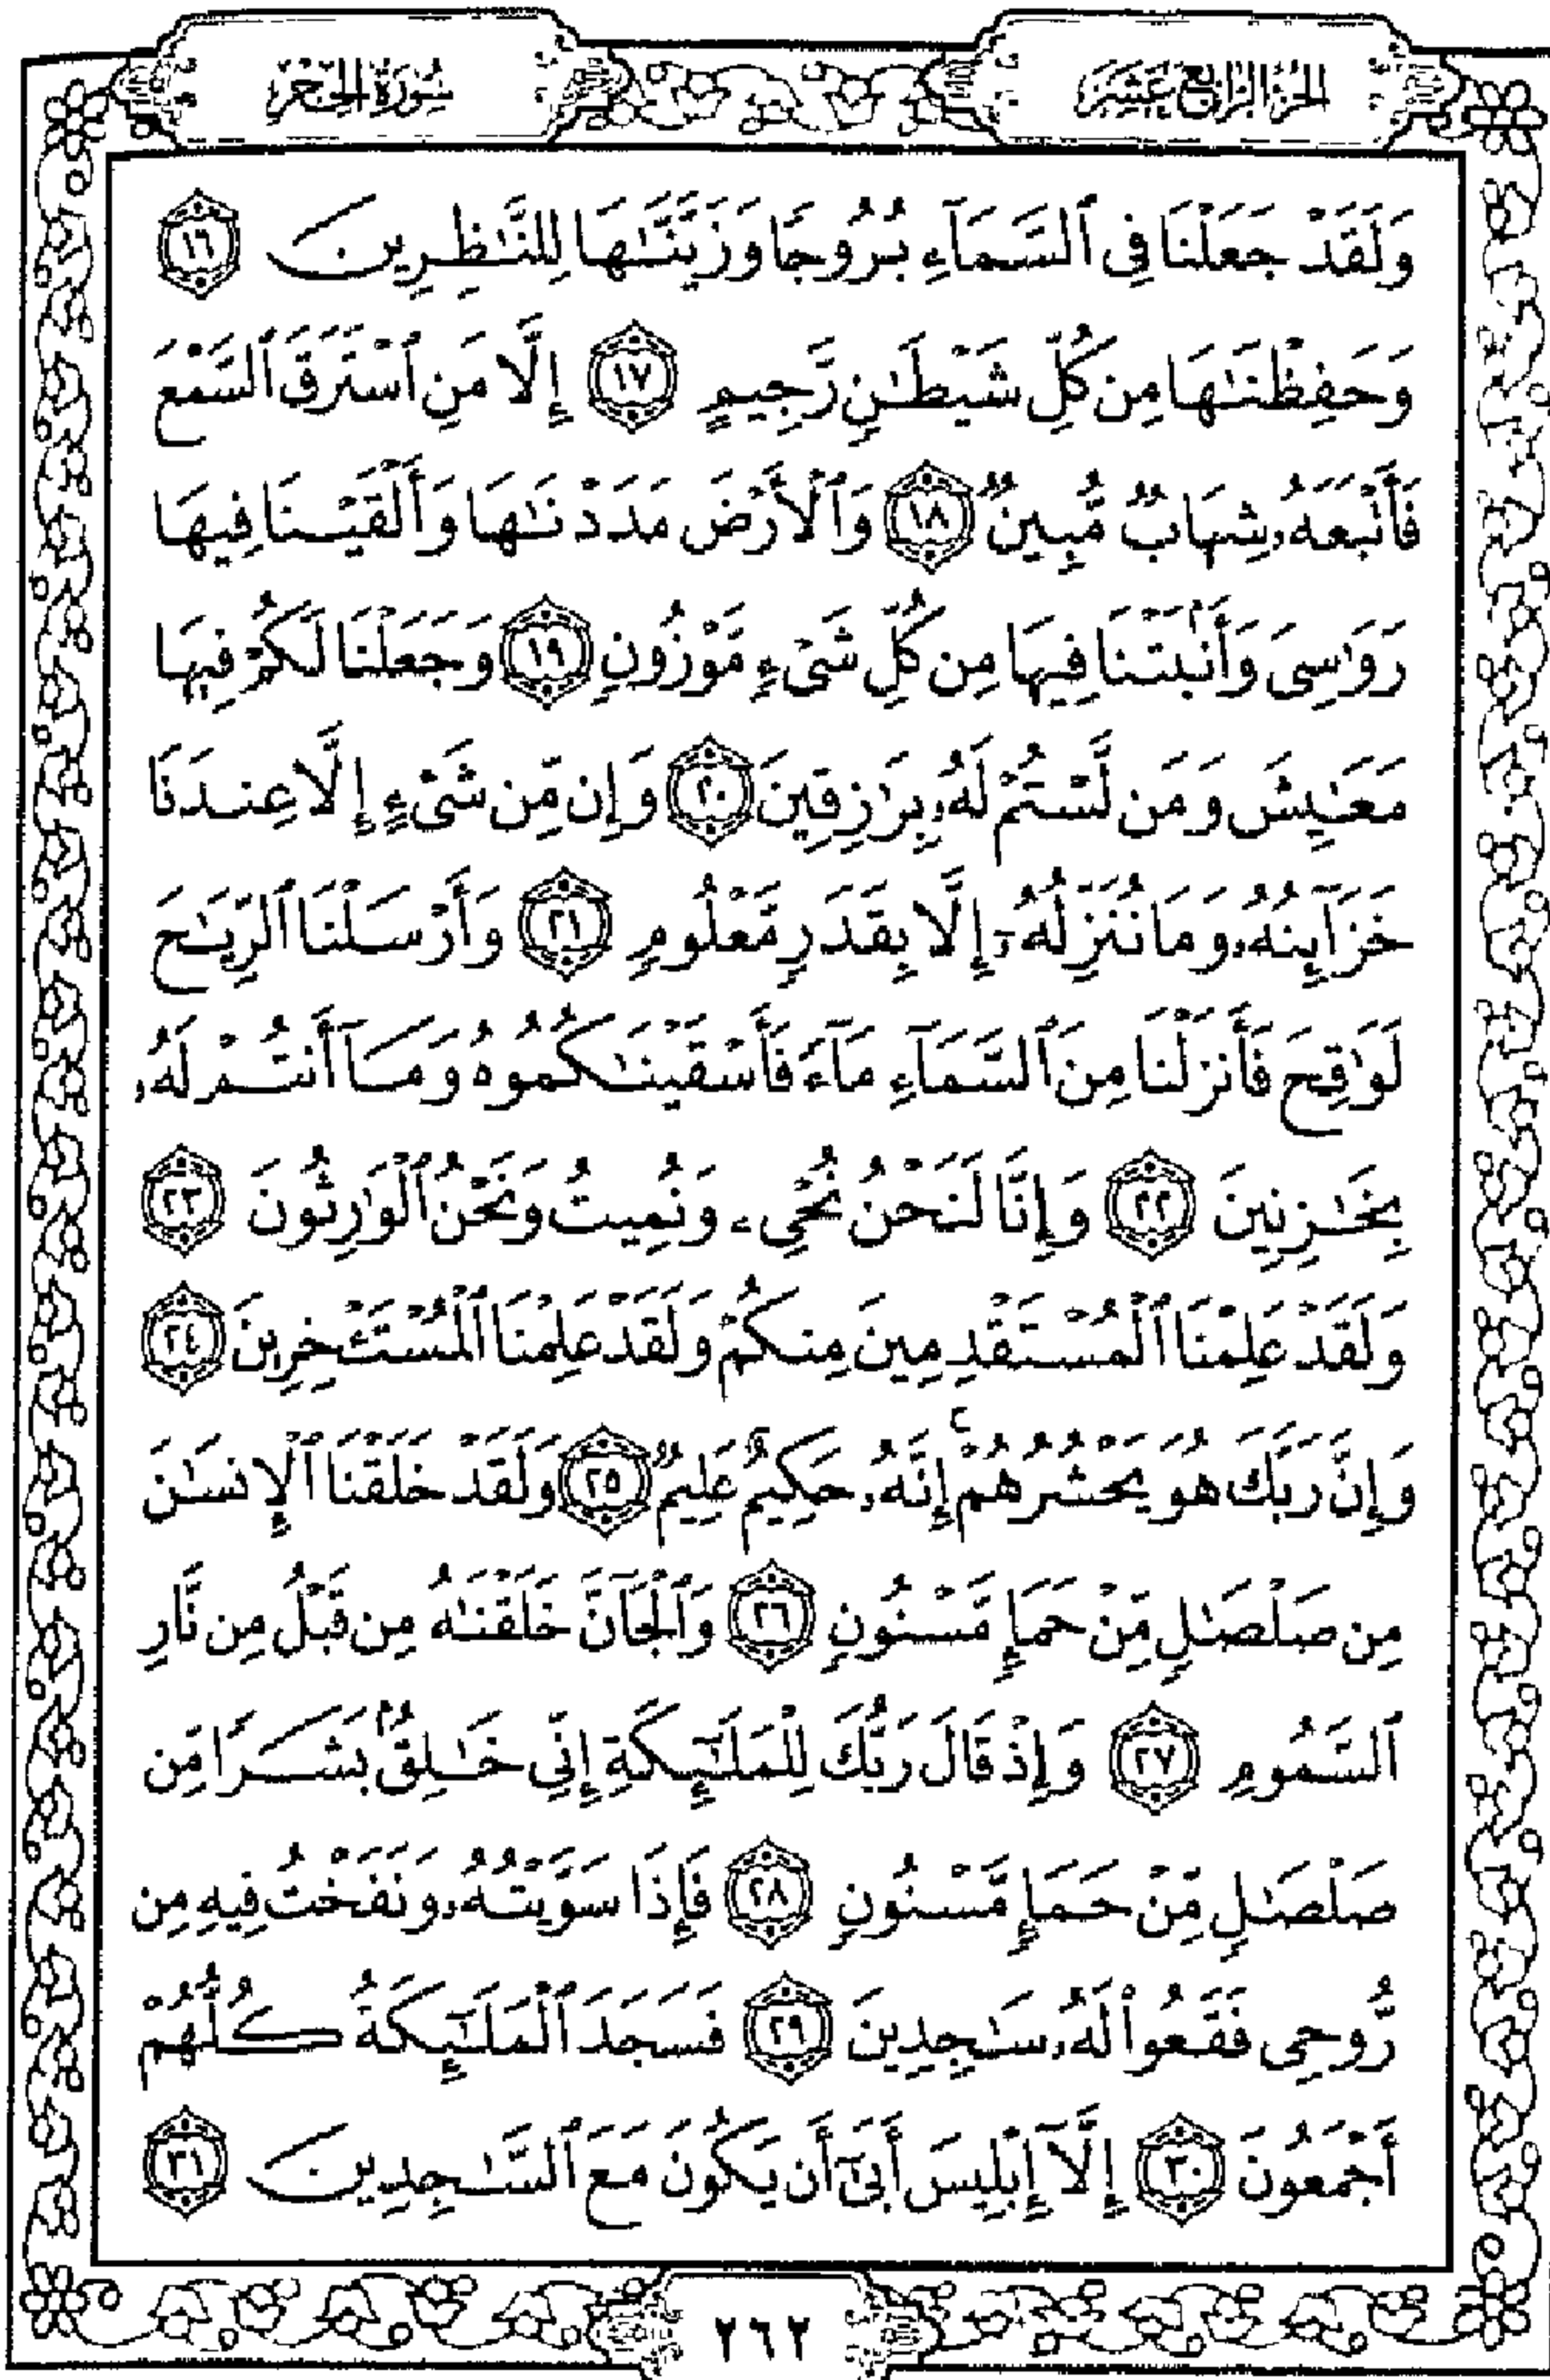 الجزء الرابع عشر
سورة الحجر
وَلَقَدْ جَعَلْنَا فِى ٱلسَّمَآءِ بُرُوجًا وَزَيَّنَّٰهَا لِلنَّٰظِرِينَ ١٦
وَحَفِظْنَٰهَا مِن كُلِّ شَيْطَٰنٍ رَّجِيمٍ ١٧ إِلَّا مَنِ ٱسْتَرَقَ ٱلسَّمْعَ
فَأَتْبَعَهُۥ شِهَابٌ مُّبِينٌ ١٨ وَٱلْأَرْضَ مَدَدْنَٰهَا وَأَلْقَيْنَا فِيهَا
رَوَٰسِىَ وَأَنۢبَتْنَا فِيهَا مِن كُلِّ شَىْءٍ مَّوْزُونٍ ١٩ وَجَعَلْنَا لَكُمْ فِيهَا
مَعَٰيِشَ وَمَن لَّسْتُمْ لَهُۥ بِرَٰزِقِينَ ٢٠ وَإِن مِّن شَىْءٍ إِلَّا عِندَنَا
خَزَآئِنُهُۥ وَمَا نُنَزِّلُهُۥٓ إِلَّا بِقَدَرٍ مَّعْلُومٍ ٢١ وَأَرْسَلْنَا ٱلرِّيَٰحَ
لَوَٰقِحَ فَأَنزَلْنَا مِنَ ٱلسَّمَآءِ مَآءً فَأَسْقَيْنَٰكُمُوهُ وَمَآ أَنتُمْ لَهُۥ
بِخَٰزِنِينَ ٢٢ وَإِنَّا لَنَحْنُ نُحْىِۦ وَنُمِيتُ وَنَحْنُ ٱلْوَٰرِثُونَ ٢٣
وَلَقَدْ عَلِمْنَا ٱلْمُسْتَقْدِمِينَ مِنكُمْ وَلَقَدْ عَلِمْنَا ٱلْمُسْتَـْٔخِرِينَ ٢٤
وَإِنَّ رَبَّكَ هُوَ يَحْشُرُهُمْ ۚ إِنَّهُۥ حَكِيمٌ عَلِيمٌ ٢٥ وَلَقَدْ خَلَقْنَا ٱلْإِنسَٰنَ
مِن صَلْصَٰلٍ مِّنْ حَمَإٍ مَّسْنُونٍ ٢٦ وَٱلْجَآنَّ خَلَقْنَٰهُ مِن قَبْلُ مِن نَّارِ
ٱلسَّمُومِ ٢٧ وَإِذْ قَالَ رَبُّكَ لِلْمَلَٰٓئِكَةِ إِنِّى خَٰلِقٌۢ بَشَرًا مِّن
صَلْصَٰلٍ مِّنْ حَمَإٍ مَّسْنُونٍ ٢٨ فَإِذَا سَوَّيْتُهُۥ وَنَفَخْتُ فِيهِ مِن
رُّوحِى فَقَعُوا۟ لَهُۥ سَٰجِدِينَ ٢٩ فَسَجَدَ ٱلْمَلَٰٓئِكَةُ كُلُّهُمْ
أَجْمَعُونَ ٣٠ إِلَّآ إِبْلِيسَ أَبَىٰٓ أَن يَكُونَ مَعَ ٱلسَّٰجِدِينَ ٣١
٢٦٢